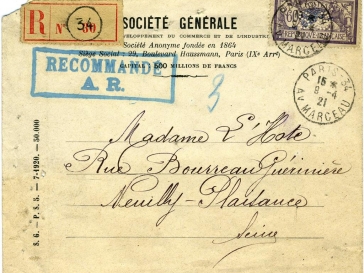 R
N° 60
34
SOCIÉTÉ GÉNÉRALE
DÉVELOPPEMENT DU COMMERCE ET DE L'INDUSTRIE
Société Anonyme fondée en 1864
Siège Social : 29, Boulevard Haussmann, Paris (IXe Arrt)
CAPITAL : 500 MILLIONS DE FRANCS
RECOMMANDÉ
A. R.
60
PARIS-34
15*
9-4
21
AV. MARCEAU
S. G. - P. S. 5. - 7-1920. - 50.000
Madame L'Hote
Rue Bourreau Guérinière
Neuilly-Plaisance
Seine